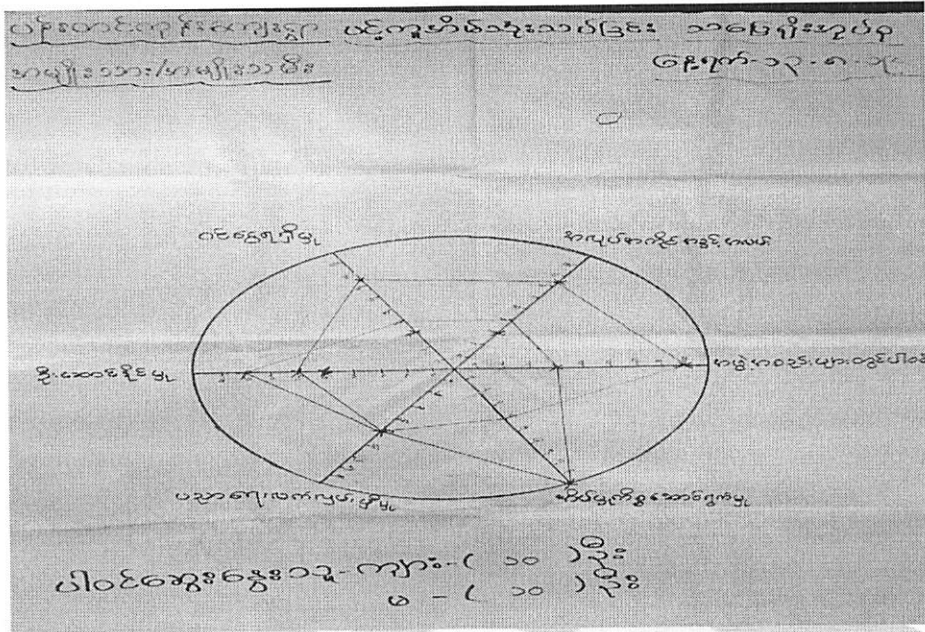 ပန်းတင်ကုန်းကျေးရွာ ပင့်ကူအိမ်သုံးသပ်ခြင်း သပြေညိုအုပ်စု
အမျိုးသား/အမျိုးသမီး နေ့ရက်-၁၃-၈-၁၄
ဝင်ငွေရရှိမှု
အလုပ်အကိုင်အခွင့်အလမ်း
ဦးဆောင်နိုင်မှု
အဖွဲ့အစည်းများတွင်ပါဝင်
ပညာရေးလက်လှမ်းမှီမှု
အိမ်မှုကိစ္စဆောင်ရွက်မှု
ပါဝင်ဆွေးနွေးသူ-ကျား-( ၁၀ )ဦး
မ - ( ၁၀ )ဦး